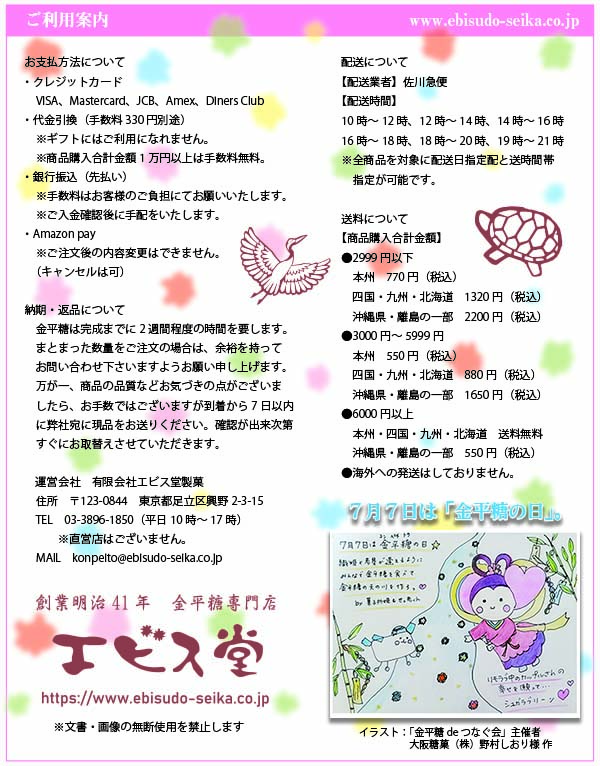 ご利用案内
www.ebisudo-seika.co.jp
お支払方法について
・クレジットカード
VISA、Mastercard、JCB、Amex、DIners Club
・代金引換（手数料 330 円別途）
※ギフトにはご利用になれません。
※商品購入合計金額 1 万円以上は手数料無料。
・銀行振込（先払い）
※手数料はお客様のご負担にてお願いいたします。
※ご入金確認後に手配をいたします。
・Amazon pay
※ご注文後の内容変更はできません。
（キャンセルは可）
納期・返品について
金平糖は完成までに 2 週間程度の時間を要します。
まとまった数量をご注文の場合は、余裕を持って
お問い合わせ下さいますようお願い申し上げます。
万が一、商品の品質などお気づきの点がございま
したら、お手数ではございますが到着から 7 日以内
に弊社宛に現品をお送りください。確認が出来次第
すぐにお取替えさせていただきます。
運営会社　有限会社エビス堂製菓
住所　〒123-0844　東京都足立区興野 2-3-15
TEL　03-3896-1850（平日 10 時〜 17 時）
※直営店はございません。
MAIL　konpeIto@ebIsudo-seIka.co.jp
創業明治 41 年　金平糖専門店
エビス堂
https://www.ebisudo-seika.co.jp
※文書・画像の無断使用を禁止します
配送について
【配送業者】佐川急便
【配送時間】
10 時〜 12 時、12 時〜 14 時、14 時〜 16 時
16 時〜 18 時、18 時〜 20 時、19 時〜 21 時
※全商品を対象に配送日指定配と送時間帯
指定が可能です。
送料について
【商品購入合計金額】
●2999 円以下
本州　770 円（税込）
四国・九州・北海道　1320 円（税込）
沖縄県・離島の一部　2200 円（税込）
●3000 円〜 5999 円
本州　550 円（税込）
四国・九州・北海道　880 円（税込）
沖縄県・離島の一部　1650 円（税込）
●6000 円以上
本州・四国・九州・北海道　送料無料
沖縄県・離島の一部　550 円（税込）
●海外への発送はしておりません。
7月7日は「金平糖の日」。
7月7日は金平糖の日☆
織姫と彦星が逢えるように
みんなで金平糖を食べて
金平糖の天の川を作る。
リモラブ中のカップルさんの
幸せを願って…
シュガララリーン
イラスト：「金平糖 de つなぐ会」主催者
大阪糖菓（株）野村しおり様 作